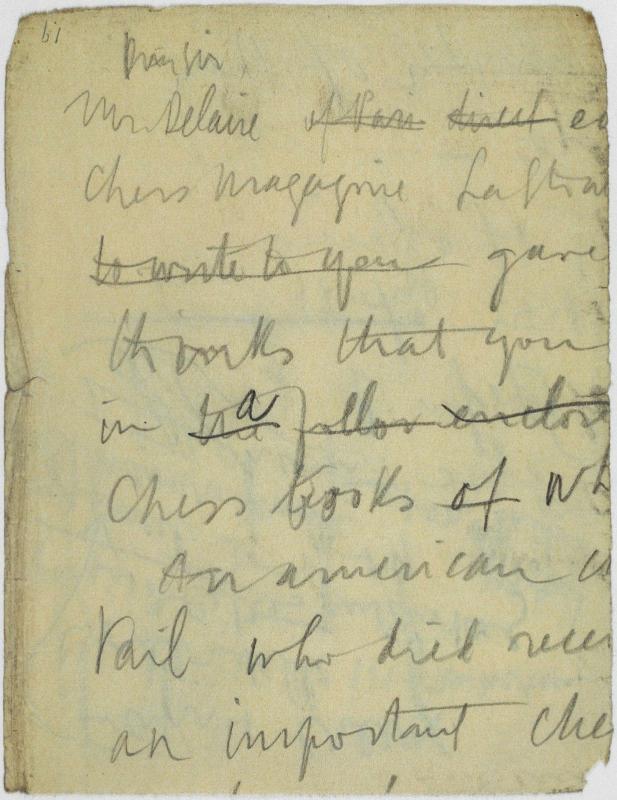 61
Dear Sir,
Mr Delaire of Paris direct ed
Chess Magazine La Stra
to write to you gave
thinks that you
in the a follow enclose
Chess books of wh
An american c
Vail who died recen
an important che